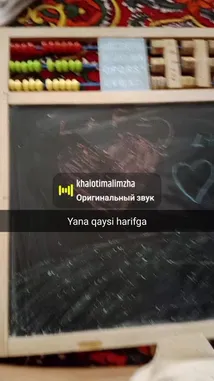 khalotimalimzha
Оригинальный звук
Yana qaysi harifga